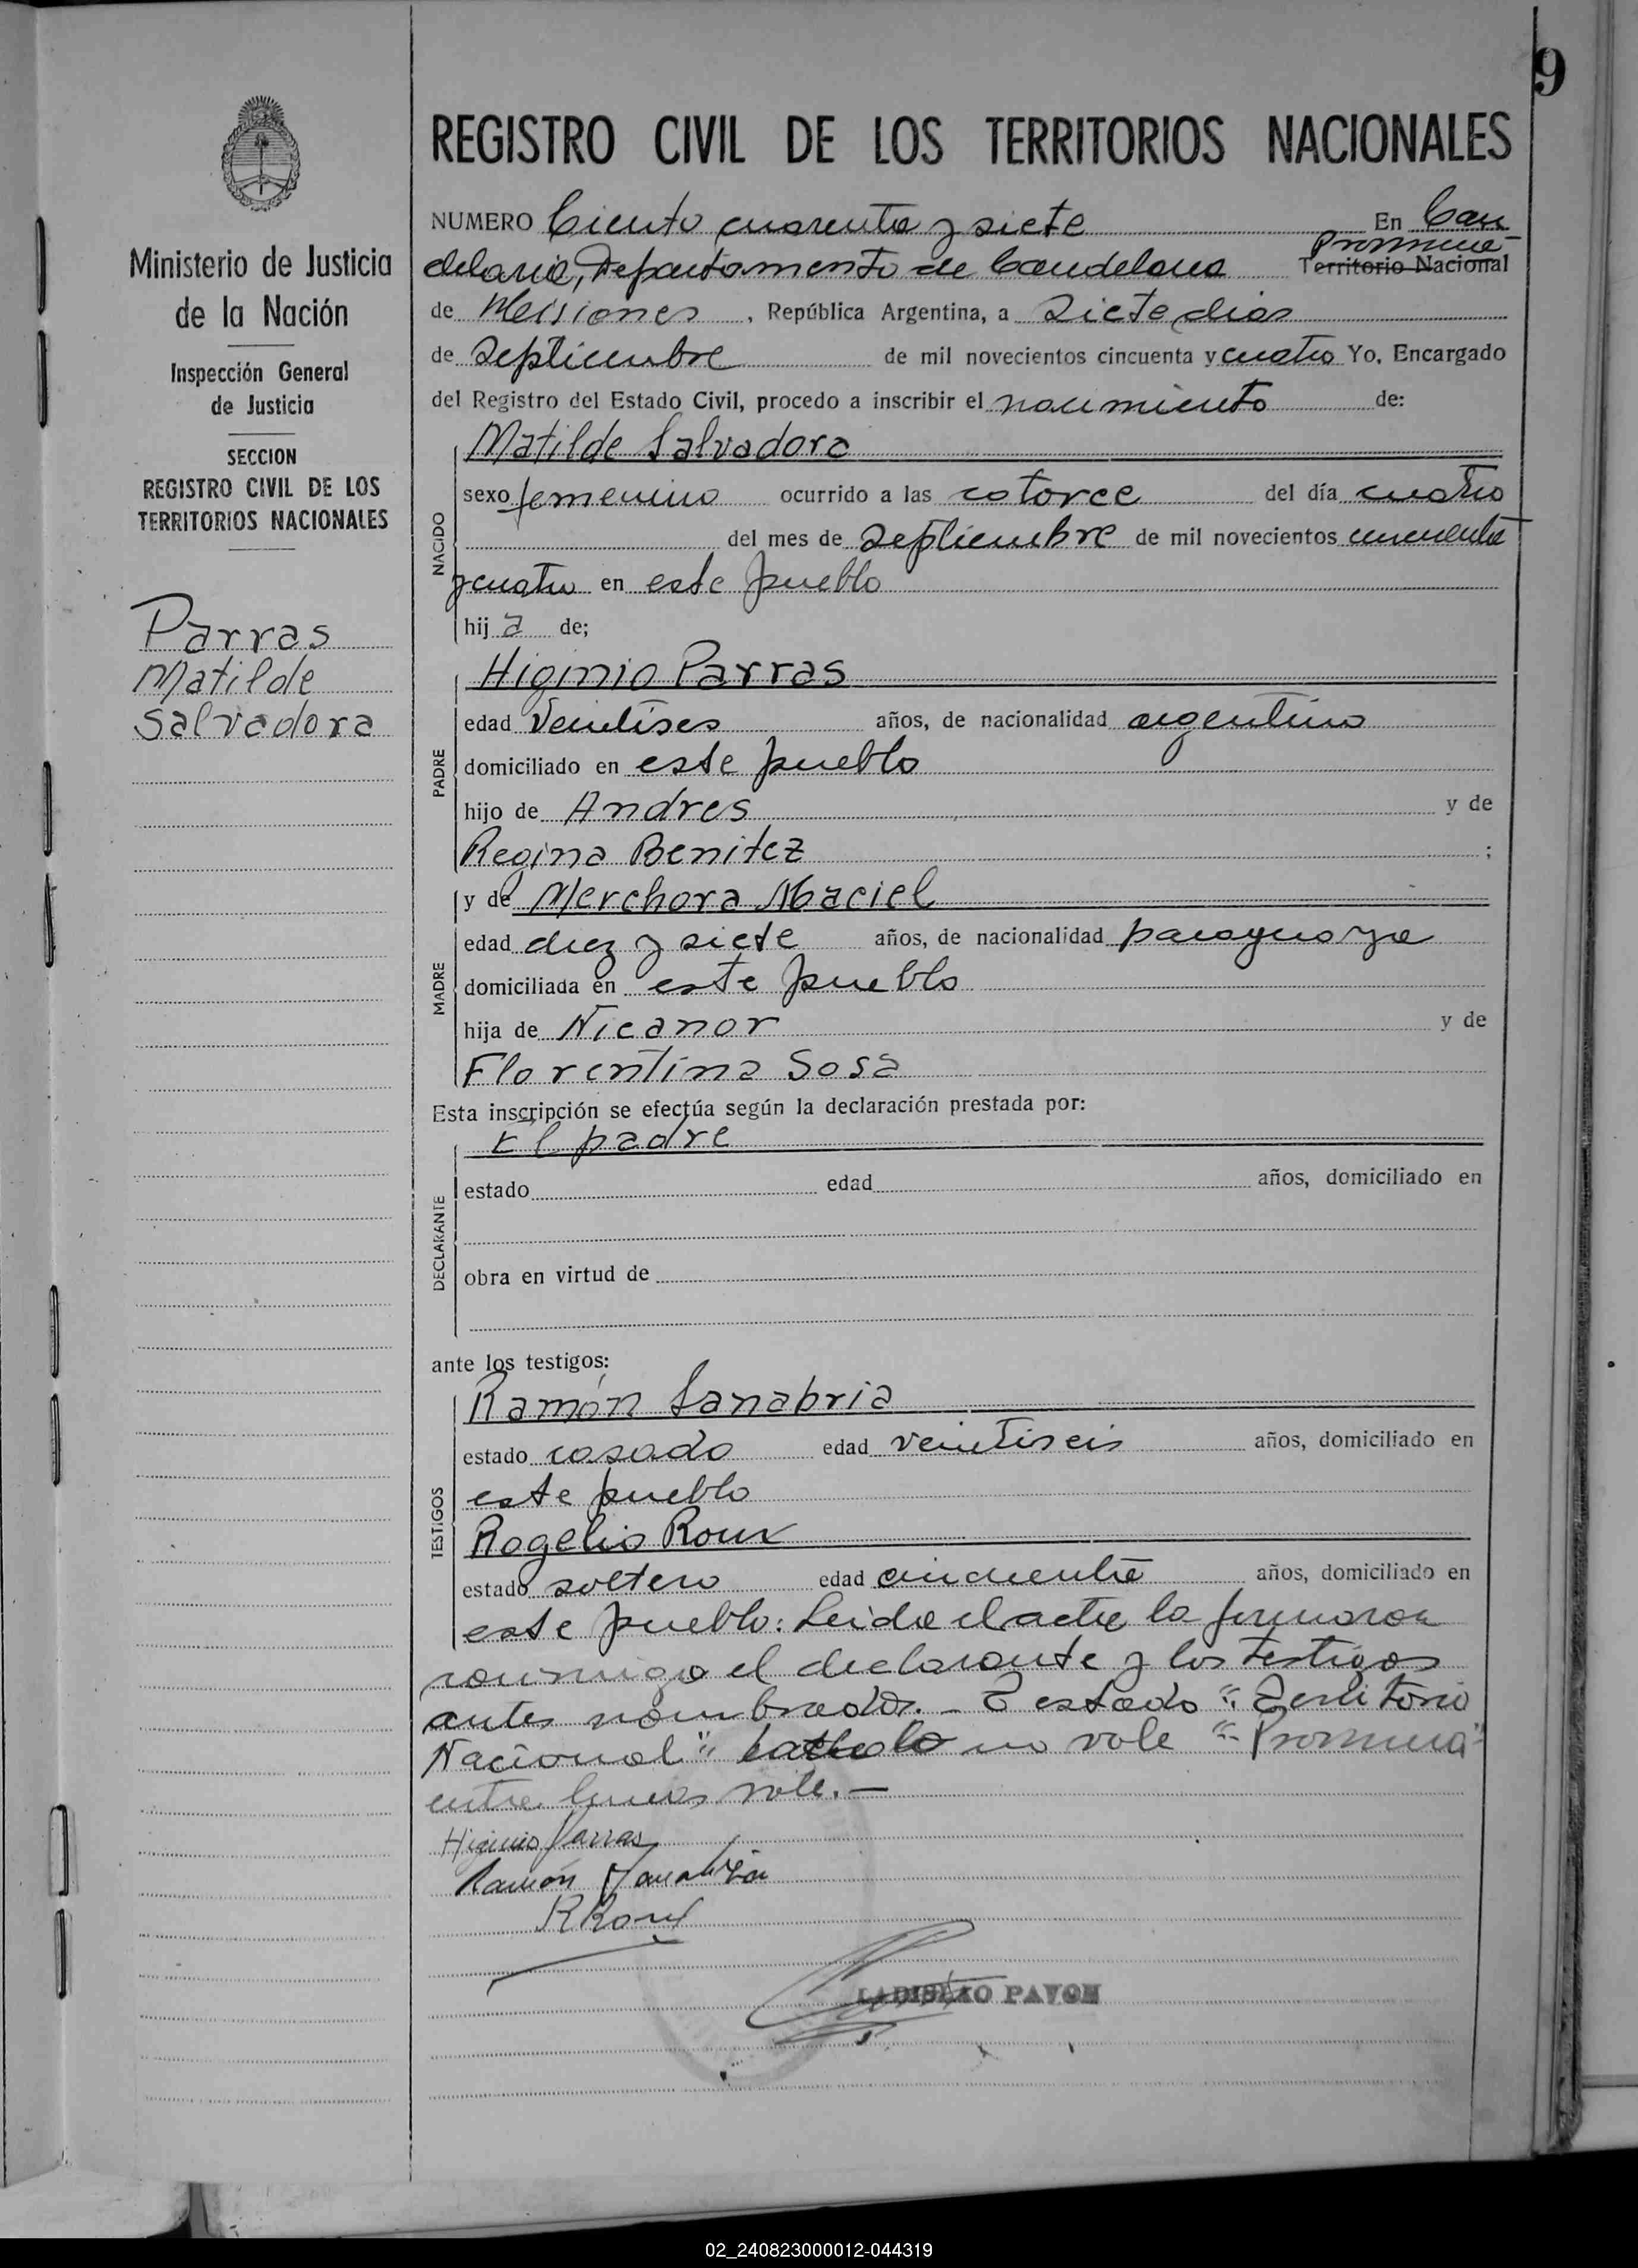 9
REGISTRO CIVIL DE LOS TERRITORIOS NACIONALES
Ministerio de Justicia
de la Nación
Inspección General
de Justicia
SECCION
REGISTRO CIVIL DE LOS
TERRITORIOS NACIONALES
Parras
Matilde
Salvadora
NUMERO Ciento cuarenta y siete En Can
Provincia
delaria, Departamento de Candelaria Territorio Nacional
de Misiones, República Argentina, a siete dias
de Septiembre de mil novecientos cincuenta y cuatro Yo, Encargado
del Registro del Estado Civil, procedo a inscribir el nacimiento de:
NACIDO
Matilde Salvadora
sexo femenino ocurrido a las catorce del día cuatro
del mes de Septiembre de mil novecientos cincuenta
y cuatro en este pueblo
hij a de;
PADRE
Higinio Parras
edad Ventises años, de nacionalidad argentino
domiciliado en este pueblo
hijo de Andres y de
Regina Benitez ;
MADRE
y de Merchora Maciel
edad diez y siete años, de nacionalidad paraguaya
domiciliada en este pueblo
hija de Nicanor y de
Florentina Sosa
Esta inscripción se efectúa según la declaración prestada por:
DECLARANTE
El padre
estado edad años, domiciliado en
obra en virtud de
ante los testigos:
TESTIGOS
Ramón Sanabria
estado casado edad veintiseis años, domiciliado en
este pueblo
Rogelio Roux
estado soltero edad cincuenta años, domiciliado en
este pueblo: Leida el acta la firmaron
conmigo el declarante y los testigos
antes nombrados.- Testado "Territorio
Nacional" no vale "Provincia"
entre lineas vale.-
Higinio Parras
Ramón Sanabria
R Roux
LADISLAO PAVON
02_240823000012-044319